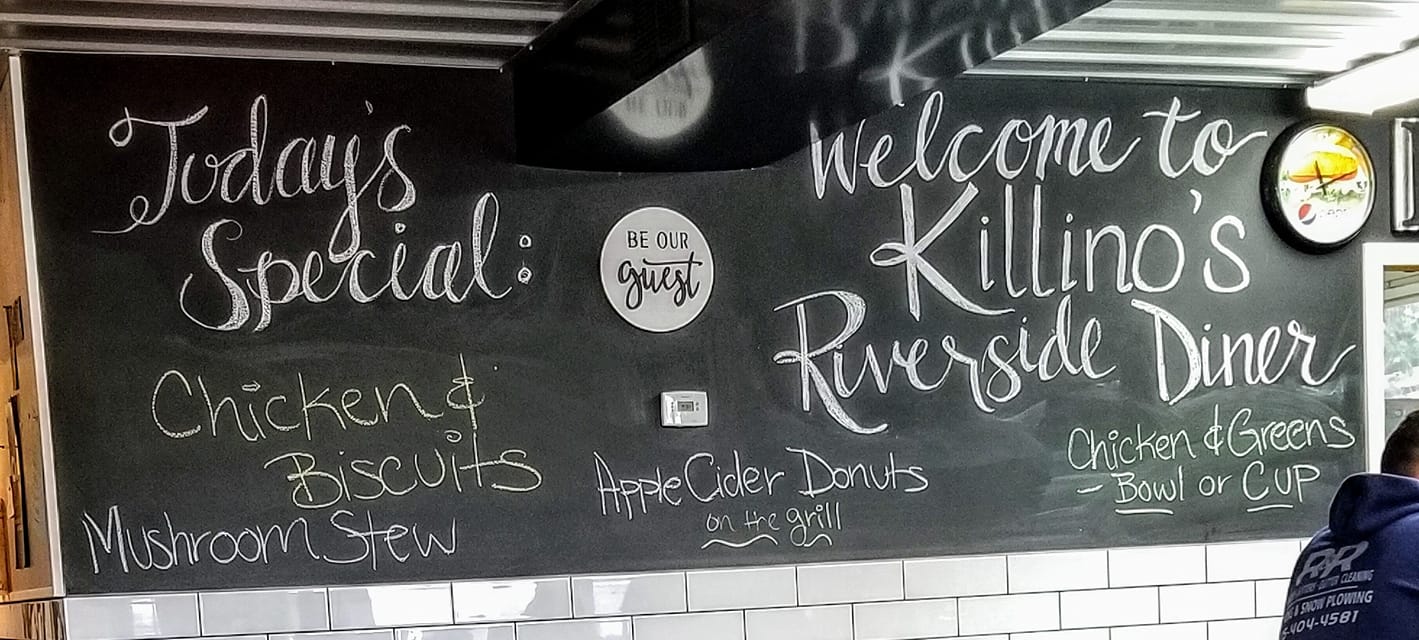 Today's
Special:
Chicken &
Biscuits
Mushroom Stew
BE OUR
guest
Apple Cider Donuts
on the grill
Welcome to
Killino's
Riverside Diner
Chicken & Greens
- Bowl or CUP
pepsi
R&R
GUTTER CLEANING
& SNOW PLOWING
-404-4581